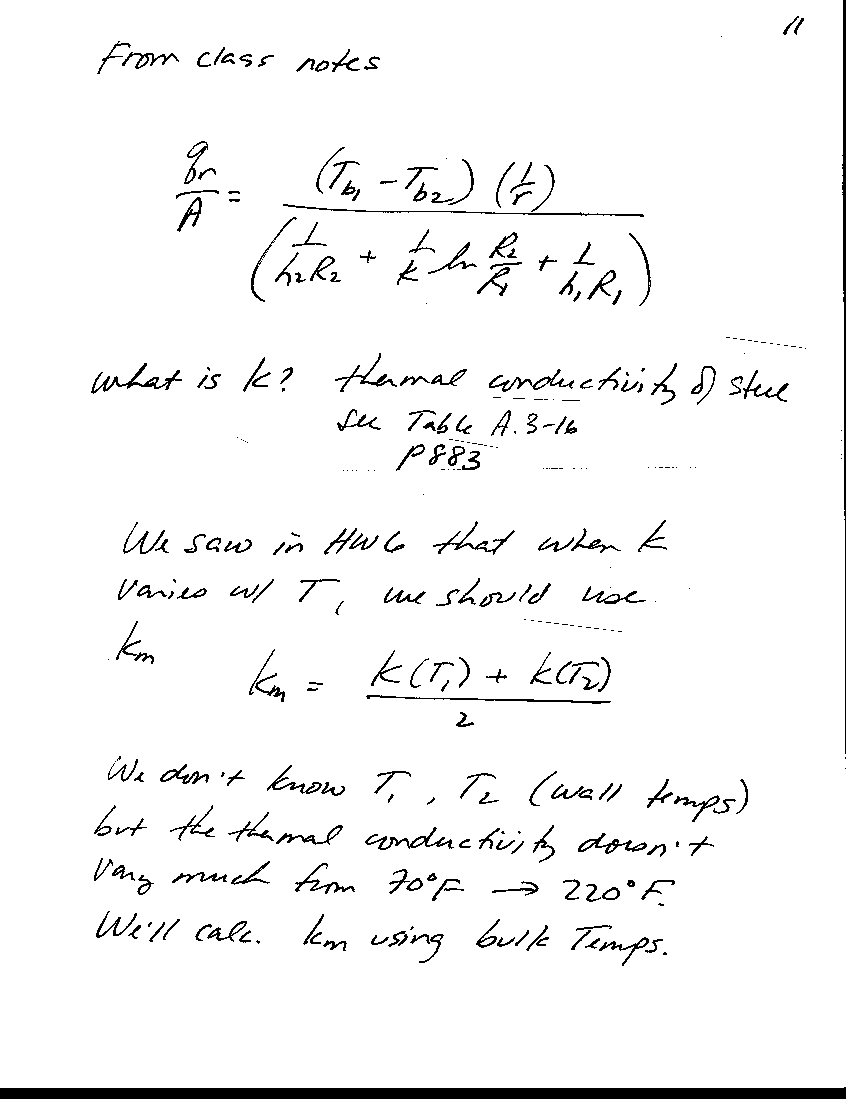 11
From class notes
qr/A = (Tb1 - Tb2) (1/r) / (1/h2R2 + 1/k ln R2/R1 + 1/h1R1)
what is k? thermal conductivity of steel
see Table A.3-16
P883
We saw in HW6 that when k
varies w/ T, we should use
km
km = k(T1) + k(T2) / 2
We don't know T1, T2 (wall temps)
but the thermal conductivity doesn't
vary much from 70°F → 220°F.
We'll calc. km using bulk Temps.